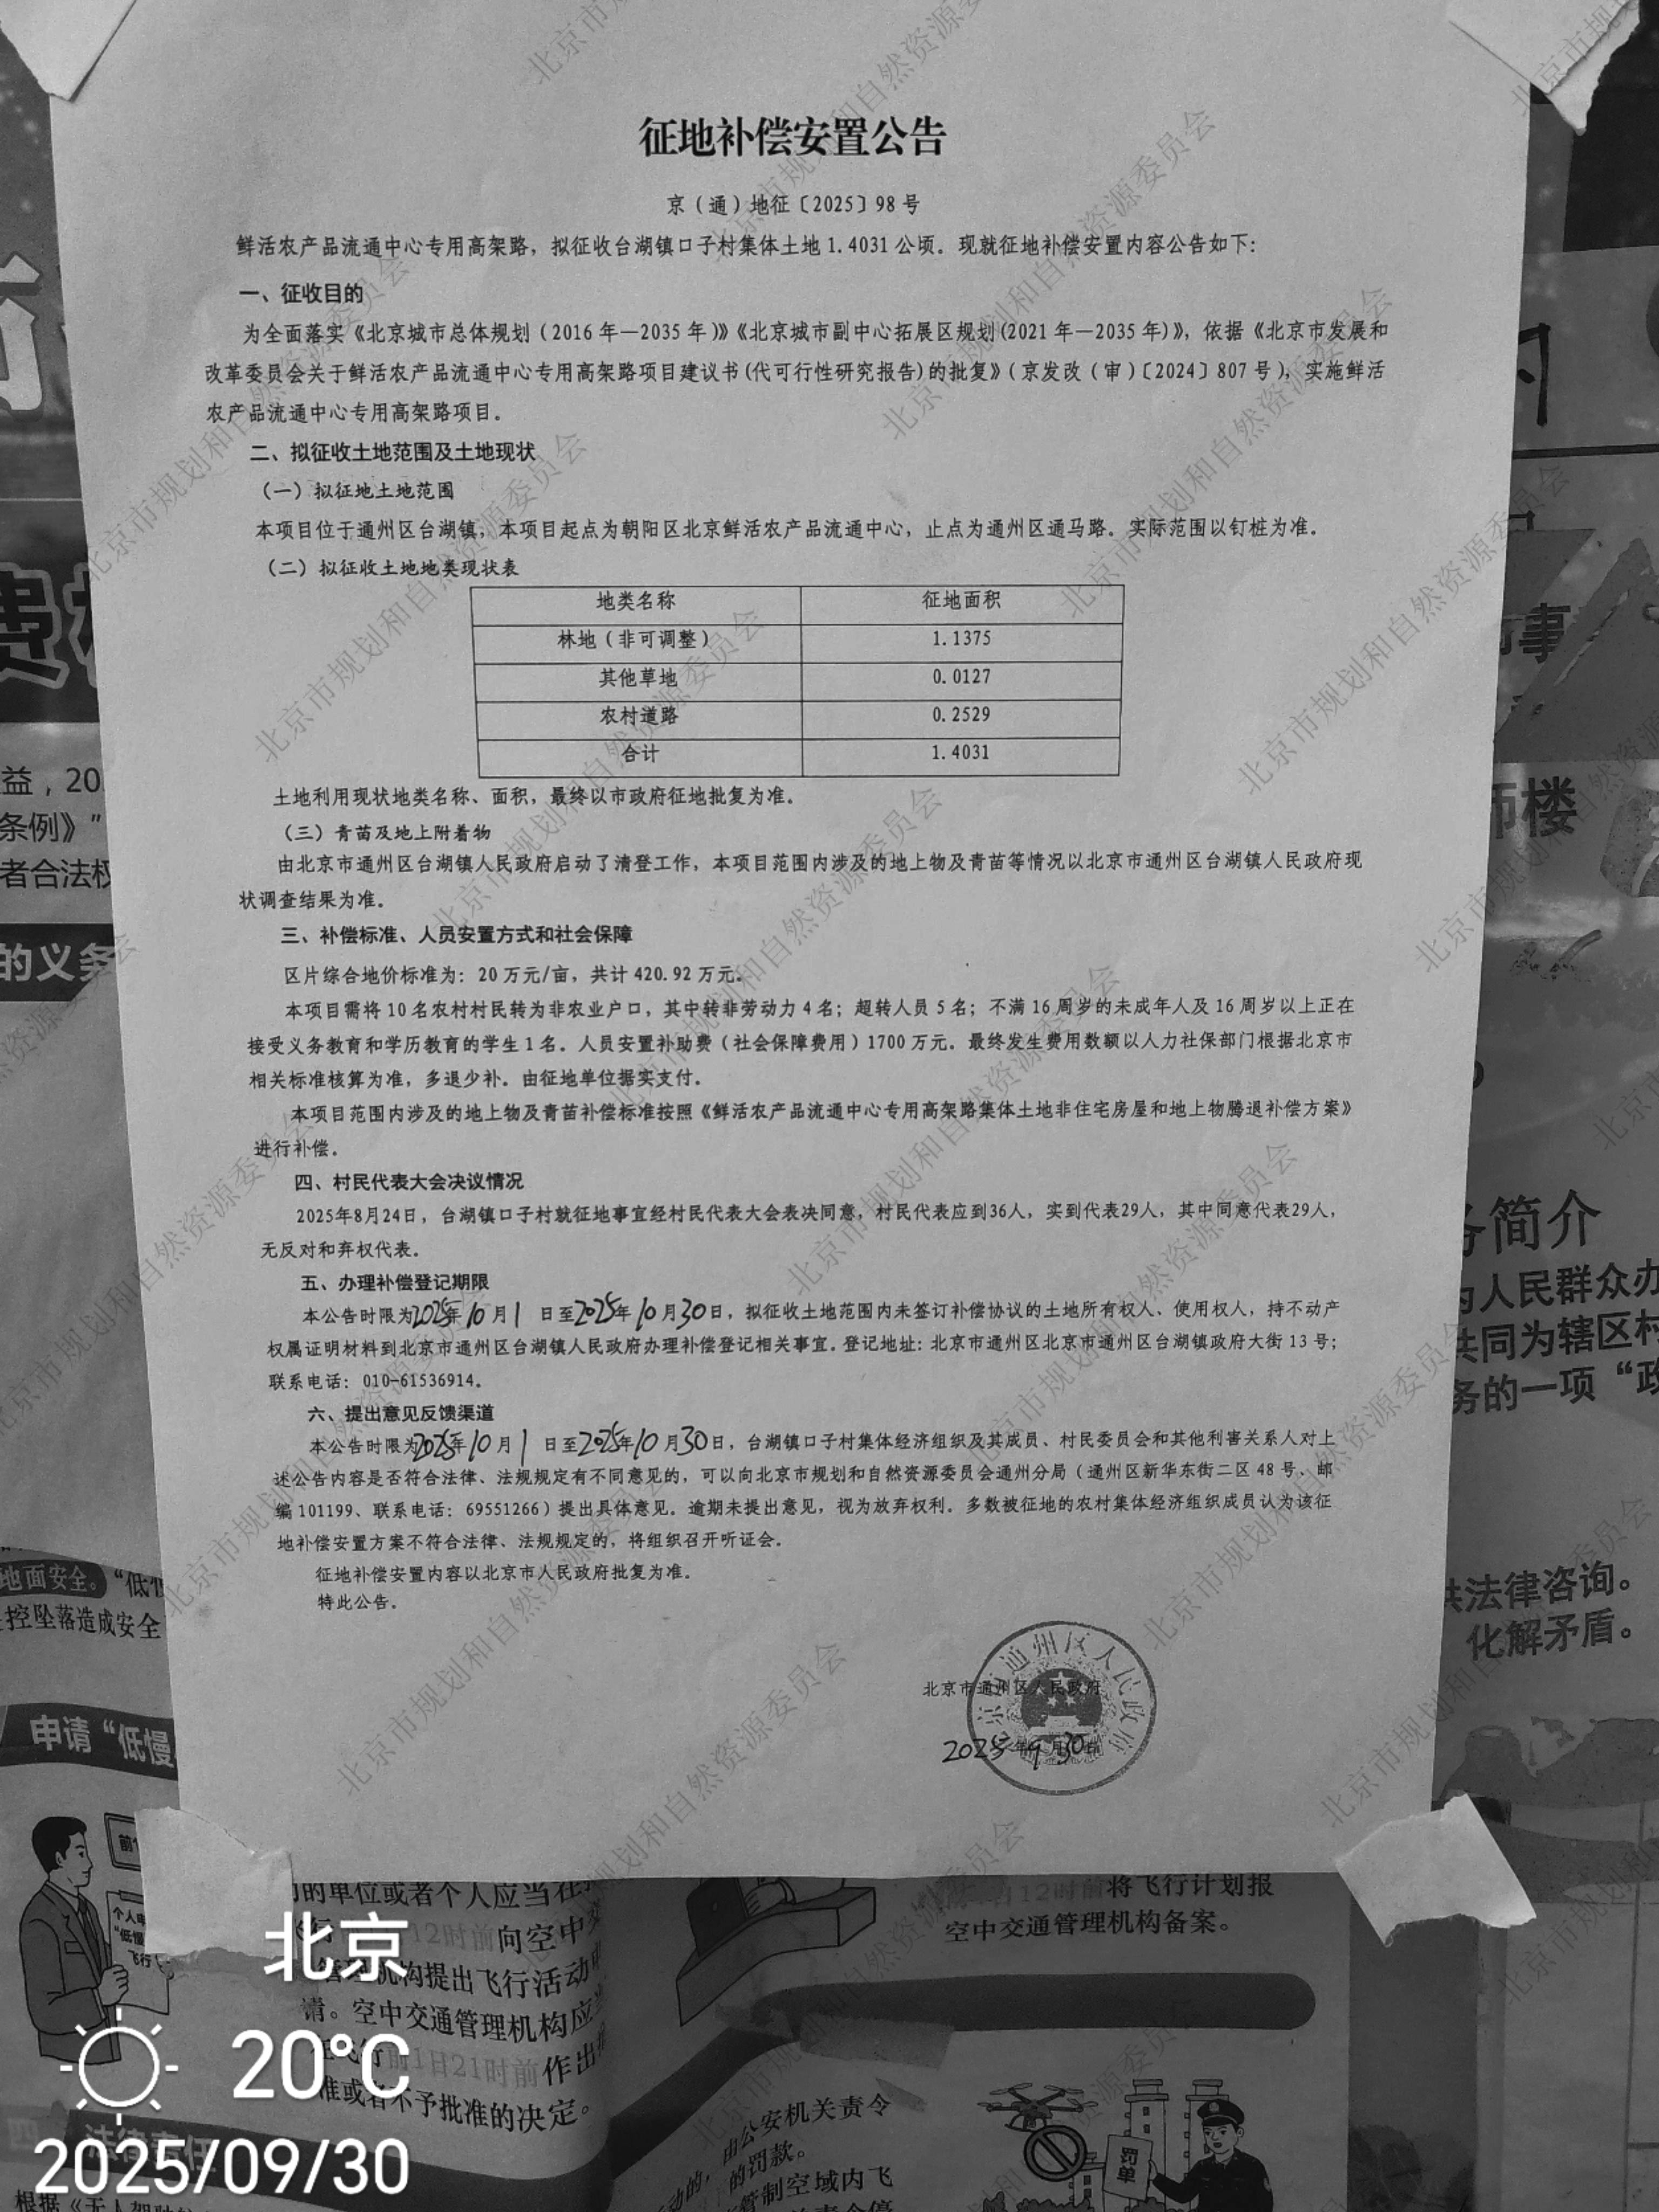 征地补偿安置公告
京（通）地征〔2025〕98号
鲜活农产品流通中心专用高架路，拟征收台湖镇口子村集体土地1.4031公顷。现就征地补偿安置内容公告如下：
一、征收目的
为全面落实《北京城市总体规划（2016年—2035年）》《北京城市副中心拓展区规划(2021年—2035年)》，依据《北京市发展和
改革委员会关于鲜活农产品流通中心专用高架路项目建议书(代可行性研究报告)的批复》（京发改（审）〔2024〕807号），实施鲜活
农产品流通中心专用高架路项目。
二、拟征收土地范围及土地现状
（一）拟征地土地范围
本项目位于通州区台湖镇，本项目起点为朝阳区北京鲜活农产品流通中心，止点为通州区通马路。实际范围以钉桩为准。
（二）拟征收土地地类现状表
地类名称 征地面积
林地（非可调整） 1.1375
其他草地 0.0127
农村道路 0.2529
合计 1.4031
土地利用现状地类名称、面积，最终以市政府征地批复为准。
（三）青苗及地上附着物
由北京市通州区台湖镇人民政府启动了清登工作，本项目范围内涉及的地上物及青苗等情况以北京市通州区台湖镇人民政府现
状调查结果为准。
三、补偿标准、人员安置方式和社会保障
区片综合地价标准为：20万元/亩，共计420.92万元。
本项目需将10名农村村民转为非农业户口，其中转非劳动力4名；超转人员5名；不满16周岁的未成年人及16周岁以上正在
接受义务教育和学历教育的学生1名。人员安置补助费（社会保障费用）1700万元。最终发生费用数额以人力社保部门根据北京市
相关标准核算为准，多退少补。由征地单位据实支付。
本项目范围内涉及的地上物及青苗补偿标准按照《鲜活农产品流通中心专用高架路集体土地非住宅房屋和地上物腾退补偿方案》
进行补偿。
四、村民代表大会决议情况
2025年8月24日，台湖镇口子村就征地事宜经村民代表大会表决同意，村民代表应到36人，实到代表29人，其中同意代表29人，
无反对和弃权代表。
五、办理补偿登记期限
本公告时限为2025年10月1日至2025年10月30日，拟征收土地范围内未签订补偿协议的土地所有权人、使用权人，持不动产
权属证明材料到北京市通州区台湖镇人民政府办理补偿登记相关事宜。登记地址：北京市通州区北京市通州区台湖镇政府大街13号；
联系电话：010-61536914。
六、提出意见反馈渠道
本公告时限为2025年10月1日至2025年10月30日，台湖镇口子村集体经济组织及其成员、村民委员会和其他利害关系人对上
述公告内容是否符合法律、法规规定有不同意见的，可以向北京市规划和自然资源委员会通州分局（通州区新华东街二区48号、邮
编101199、联系电话：69551266）提出具体意见。逾期未提出意见，视为放弃权利。多数被征地的农村集体经济组织成员认为该征
地补偿安置方案不符合法律、法规规定的，将组织召开听证会。
征地补偿安置内容以北京市人民政府批复为准。
特此公告。
北京市通州区人民政府
2025年9月30日
益，20
条例》”
者合法权
的义务
师楼
务简介
为人民群众办
共同为辖区村
务的一项“政
共法律咨询。
化解矛盾。
地面安全。“低
控坠落造成安全
申请“低慢
的单位或者个人应当在
12时前向空中交
管理机构提出飞行活动申
请。空中交通管理机构应
前1日21时前作出
准或者不予批准的决定。
12时前将飞行计划报
空中交通管理机构备案。
由公安机关责令
的罚款。
管制空域内飞
罚单
四 法律责任
北京
20°C
2025/09/30